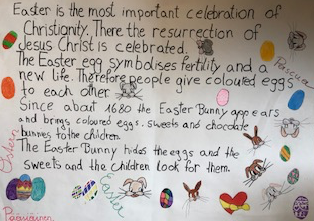 Easter is the most important celebration of
Christianity. There the resurrection of
Jesus Christ is celebrated.
The Easter egg symbolises fertility and a
new life. Therefore people give coloured eggs
to each other
Since about 1680 the Easter Bunny appears
and brings coloured eggs, sweets and chocolate
bunnies to the children.
The Easter Bunny hides the eggs and the
sweets and the children look for them.
Pascua
Ostern
Easter